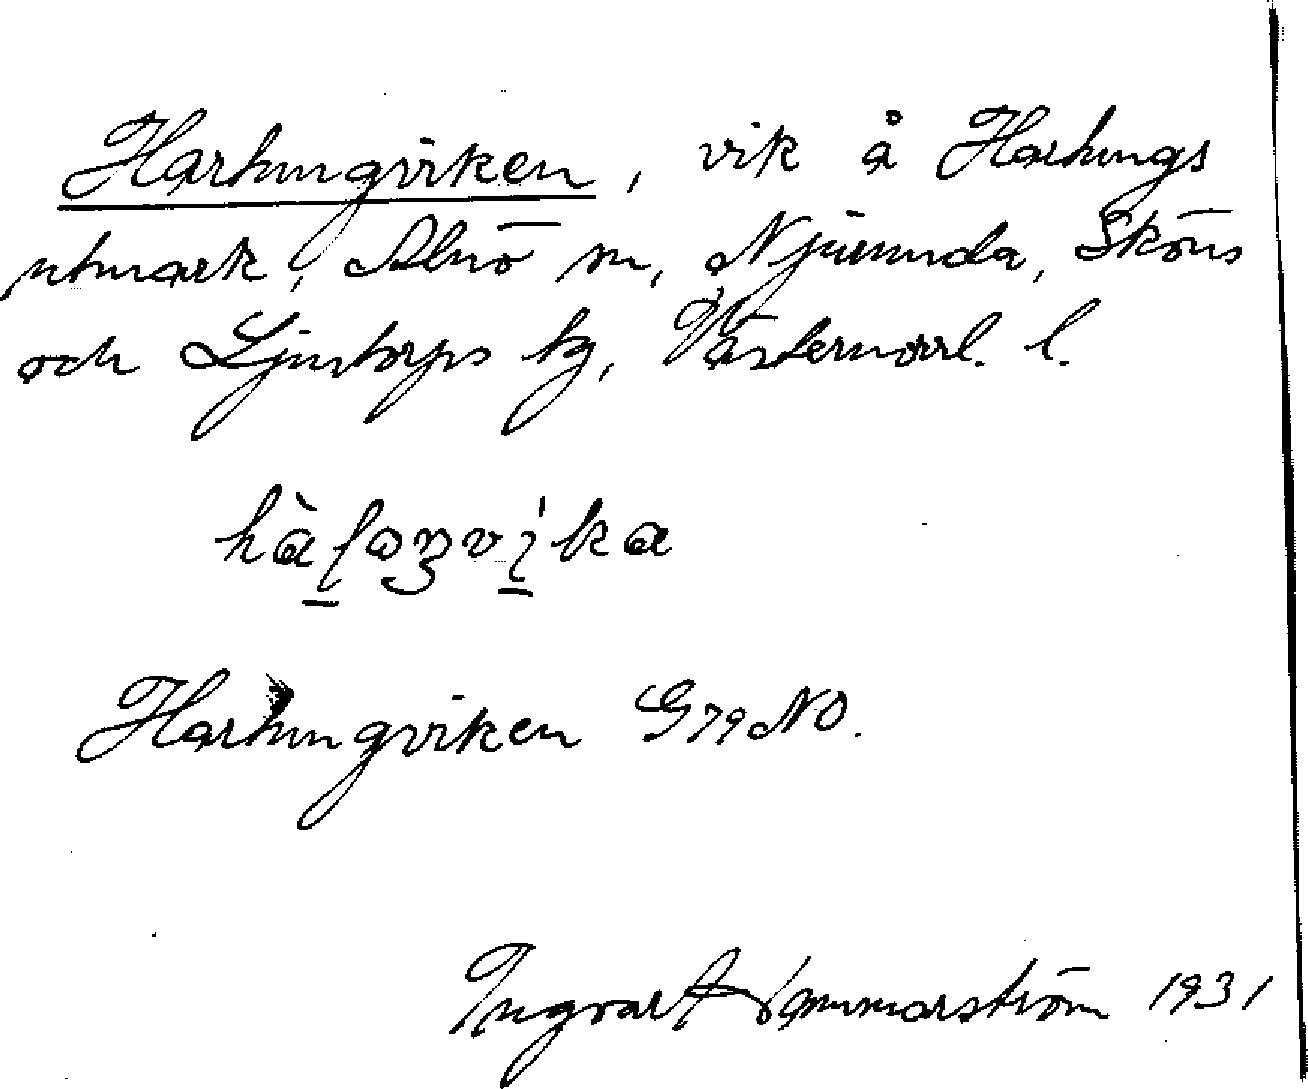 Hartungviken, vik å Hartungs
utmark, Alnö sn, Njurunda, Sköns
och Ljustorps tg, Västernorrl. l.
Hartungviken G79NO.
Ingvar Hammarström 1931